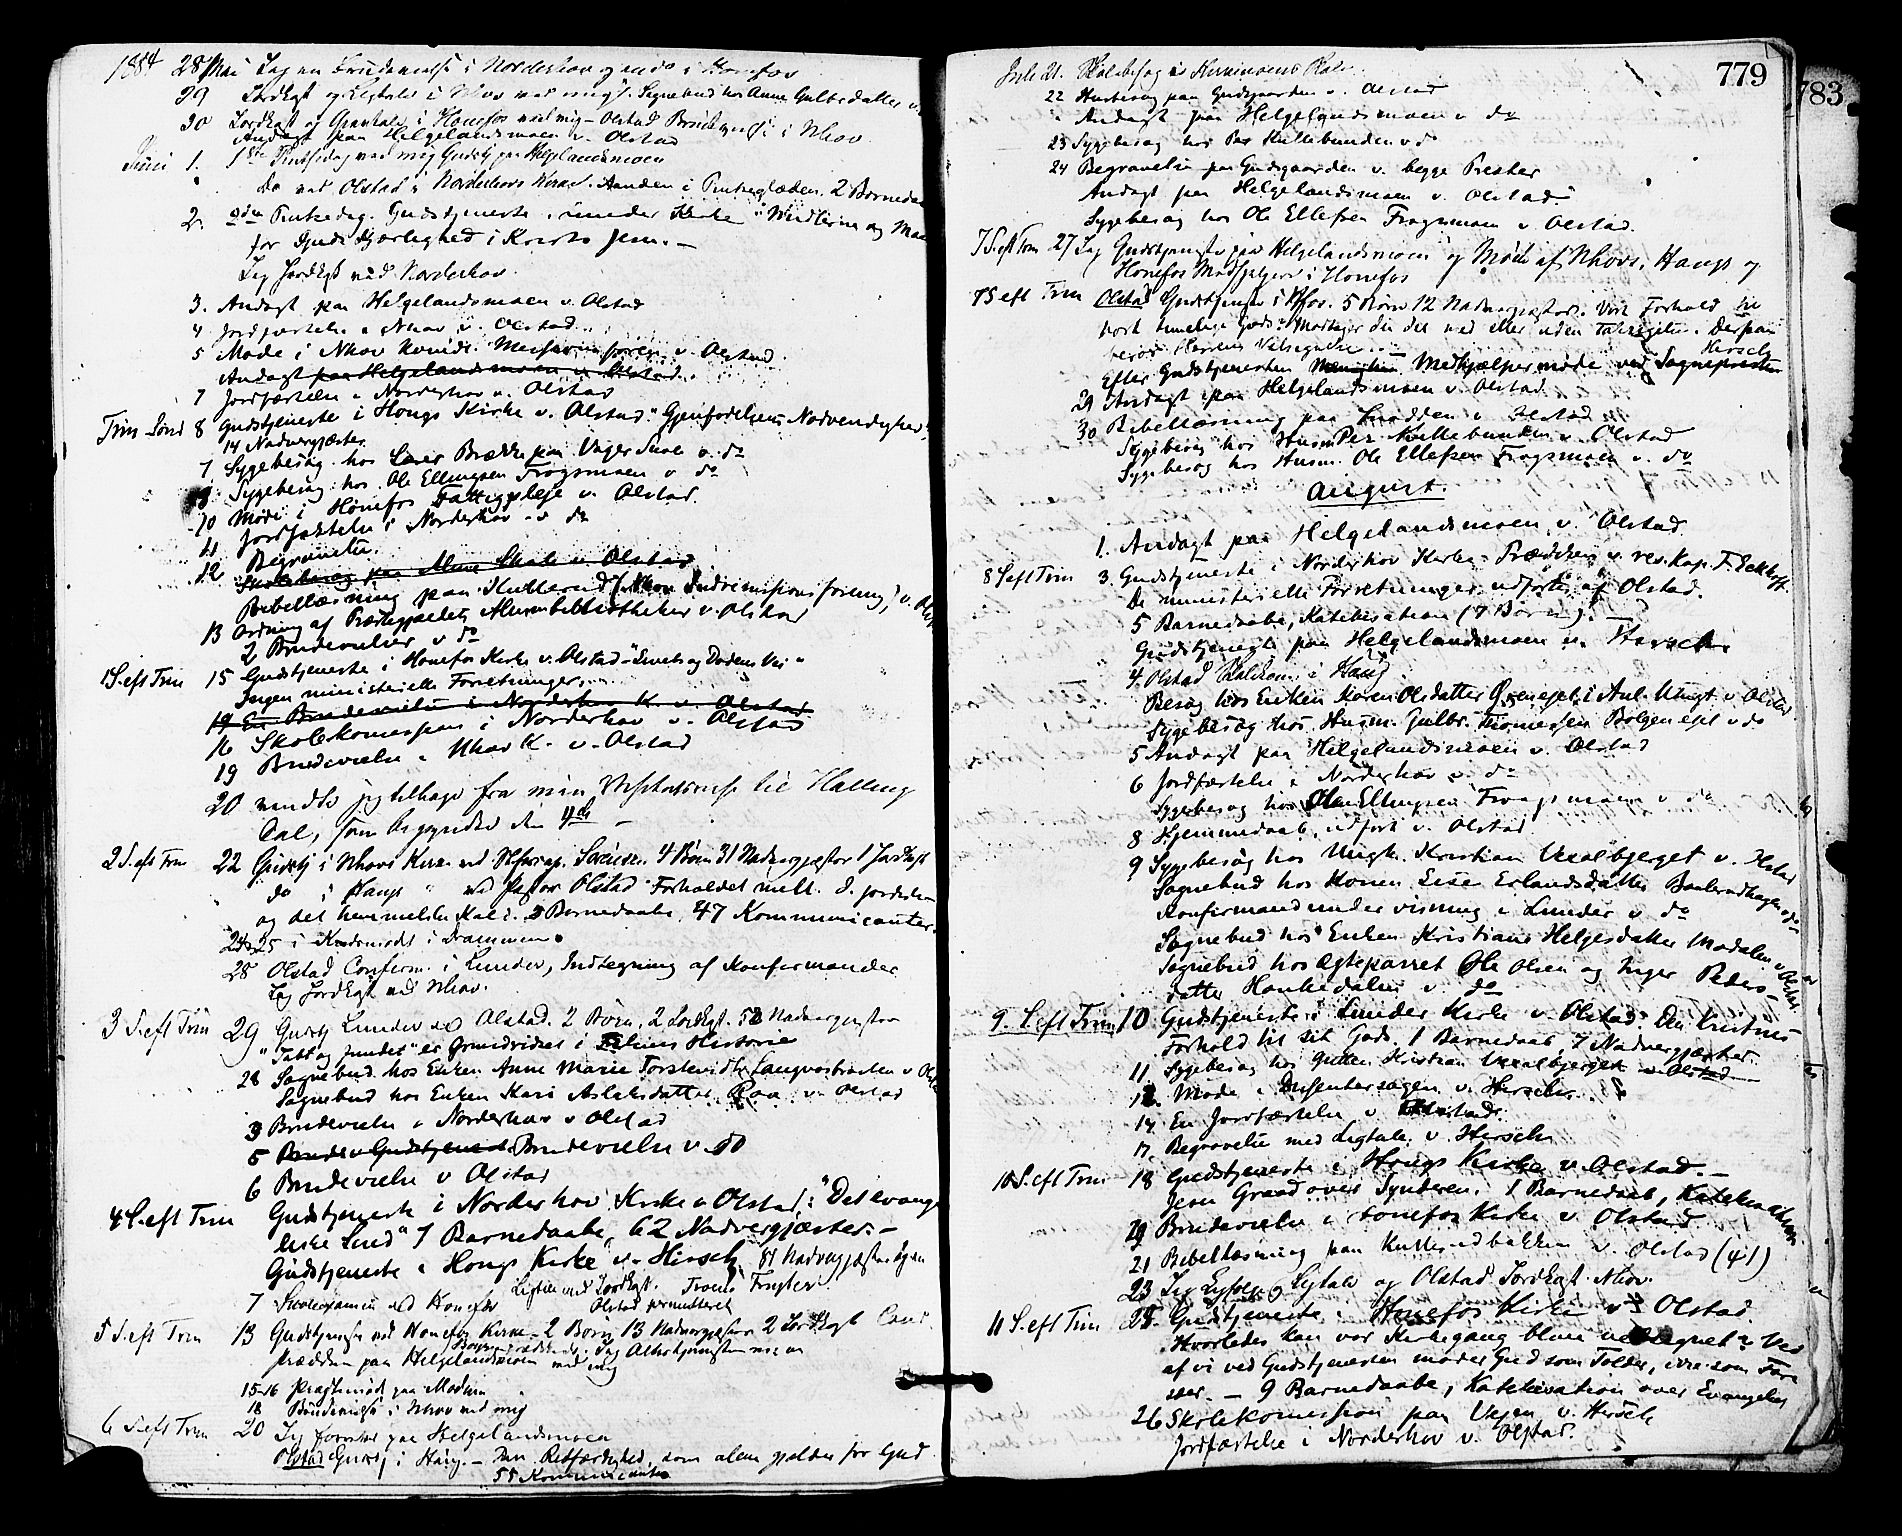 1884 28 Mai Jeg en Brudevielse i Norderhov og endo i Hønefos
29 Jordkgt og Ligtale i Nhov ved mig. Sognebud hos Anne Gulbrdatter v.
30 Jordkgt og Gravtale i Hønefos ved mig - Olstad Brudevielse i Nhov
Andagt paa Helgelandsmoen v. Olstad
Juni 1. 1ste Pintsedag ved mig Gudstj paa Helgelandsmoen
Do ved Olstad i Norderhovs Kirke. Aanden i Pinseglæden. 2 Barnedaab
2. 2den Pintsedag. Gudstjeneste i Lunder Kirke
for Guds Kjærlighed i Kristo Jesu. -
Jeg Jordkgt ved Norderhov.
3. Andagt paa Helgelandsmoen v. Olstad
4 Jordfæstelse i Nhov v. Olstad
5 Møde i Nhov Kvinde Missionsforen. v. Olstad
Andagt paa Helgelandsmoen v. Olstad.
7 Jordfæstelse i Norderhov v. Olstad
Trin Sönd 8 Gudstjeneste i Hougs Kirke v. Olstad "Gjenfødelsens Nødvendighed"
14 Nadvergjæster
7 Sygebesøg hos Lærer Brække paa Vager Skole v. do
8 Sygebesøg hos Ole Ellingsen Frogsmoen v do
10 Møde i Hønefos Fattigpleje v. Olstad.
11 Jordfæstelse i Norderhov v do
Begravelse.
12 Skolebesøg paa Alme Skole v. Olstad
Bibellæsning paa Kullerud (Nhov Indremissionsforening) v. Olst
13 Ordning af Præstegjældets Almuebibliotheker v. Olstad
2 Brudevielser v do
1 S. eft Trin 15 Gudstjeneste i Hønefos Kirke v. Olstad - "Livets og Dødens Vei"
Ingen ministerielle Forretninger.
19 En Brudevielse i Norderhov K. v. Olstad
16 Skolekomission i Norderhov v. Olstad
19 Brudevielse i Nhov K. v. Olstad
20 vendte jeg tilbage fra min Visitatsreise til Halling
Dal, som begyndte den 4de -
2 S. eft Trin 22 Gudstj i Nhovs Kirke ved Sørensen. 4 Børn 31 Nadvergjæster 1 Jordkgt
do i Haugs " ved Pastor Olstad "Forholdet mell. d. jordiske
og det himmelske Kald. 3 Barnedaab, 47 Kommunicanter.
24-25 i Kredsmøde i Drammen.
28 Olstad Confirm. i Lunder, Indtegning af Konfirmander
Jeg Jordkgt ved Nhov.
3 S. eft Trin 29 Gudstj Lunder ved Olstad. 2 Børn, 2 Jordkgt. 52 Nadvergjæster
"Tabt og fundet" er Grundridset i Historie
28 Sognebud hos Enken Anne Marie Torstensdtr v Olst
Sognebud hos Enken Kari Aslaksdatter Raa v. Olstad
3 Brudevielse i Norderhov v Olstad
5 Brudev Gudstjeneste Brudevielse v. do
6 Brudevielse v Olstad
4 S. eft Trin Gudstjeneste i Norderhov Kirke v Olstad: "Det evange
liske Sind" 7 Barnedaab, 62 Nadvergjæster. -
Gudstjeneste i Hougs Kirke v. Hirsch
7 Skoleexamen ved Hønefos Olstad permitteret
5 S. eft Trin 13 Gudstjeneste ved Hønefos Kirke - 2 Børn 13 Nadvergjæster 2 Jordkgt
Prædiken paa Helgelandsmoen ved mig
15-16 Præstemøde paa Modum
18 Brudevielse i Nhov ved mig
6 S. eft Trin 20 Jeg forrettede paa Helgelandsmoen
Olstad Gudstj i Haug. - Den Retfærdighed, som alene gjælder for Gud
55 Kommunicanter
779
783
Juli 21. Skolebesøg
22 Husbesøg paa Gudsgaarden v. Olstad
Andagt paa Helgelandsmoen v do
23 Sygebesøg hos Per Kullebunden v do
24 Begravelse paa Gudsgaarden v. begge Prester
Andagt paa Helgelandsmoen v. Olstad
Sygebesøg hos Ole Ellefsen Frogsmoen v Olstad.
7 S. eft Trin 27 Jeg Gudstjeneste paa Helgelandsmoen og Møde af Nhovs, Haugs og
Hønefos Medhjelpere i Hønefos
7 S eft Trin Olstad Gudstjeneste i Hfos. 5 Børn 12 Nadvergjæster. Vort Forhold til
vort timelige Gods: Modtager du det med eller uden Taksigelse. Derpaa
beror Herrens Velsignelse.
Efter Gudstjenesten Medhjælpermøde ved Sognepresten Hirsch
29 Andagt paa Helgelandsmoen v. Olstad.
30 Bibellæsning paa v Olstad
Sygebesøg hos Husm Per Kullebunden v. Olstad
Sygebesøg hos Husm. Ole Ellefsen Frogsmoen v. do
August.
1. Andagt paa Helgelandsmoen v. Olstad
8 S eft Trin 3. Gudstjeneste i Norderhov Kirke - Prædiken v. res. Kap. F. Eckhoff.
De ministerielle Forretninger udførtes af Olstad.
5 Barnedaab, Katekisation (7 Børn).
Gudstjeneste paa Helgelandsmoen v. Hirsch.
4. Olstad Skolekom. i Haug
Besøg hos Enken Karen Olsdatter v Olstad
Sygebesøg hos Husm. Gulbr. Tiomessen Bølgen ejet v do
5 Andagt paa Helgelandsmoen v. Olstad
6 Jordfæstelse i Norderhov v. do
Sygebesøg hos Ole Ellingsen Frogsmoen v do
8 Hjemmedaab, udført v. Olstad
9 Sygebesøg hos Ungk. Kristian Vexalbjerget v. Olstad
Sognebud hos Konen Lise Erlandsdatter v do
Konfirmandundervisning i Lunder v do
Sognebud hos Enken Kristiane Helgesdatter Modalen v Olstad
Sognebud hos Ægteparret Ole Olsen og Inger Peders-
datter Haukedalen v do
9. S. eft Trin 10 Gudstjeneste i Lunder Kirke v. Olstad: Den Kristnes
Forhold til sit Gods. 1 Barnedaab, 7 Nadvergjæster
11 Sygebesøg hos Gutten Kristian Vexalbjerget v. Olstad
12. Møde i v. Hirsch.
14. En Jordfæstelse v Olstad.
17. Begravelse med Ligtale. v. Hirsch
10 S. eft Trin 18 Gudstjeneste i Hougs Kirke v. Olstad. -
Jesu Graad over Synderen. 1 Barnedaab, Katekisation
19 Brudevielse i Hønefos Kirke v. Olstad
21 Bibellæsning paa Kullerudbakken v. Olstad (41)
23 Jeg Ligtale og Olstad Jordkgt. Nhov.
11 S. eft Trin 25. Gudstjeneste i Hønefos Kirke v. Olstad.
Hvorledes kan vor Kirkegang blive velsignet? Ved
at vi ved Gudstjenesten møder Gud som Tolder, ikke som Fari
sæer. - 9 Barnedaab, Katekisation over Evangeliet
26 Skolekomission paa Vejen v. Hirsch
Jordfæstelse i Norderhov v. Olstad.